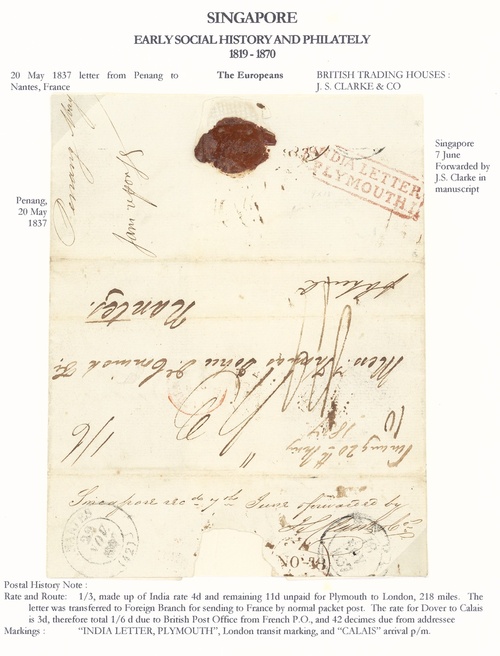 SINGAPORE
EARLY SOCIAL HISTORY AND PHILATELY
1819 - 1870
20 May 1837 letter from Penang to
Nantes, France
The Europeans
BRITISH TRADING HOUSES :
J. S. CLARKE & CO
Singapore
7 June
Forwarded by
J.S. Clarke in
manuscript
Penang,
20 May
1837
INDIA LETTER
PLYMOUTH
Nantes.
1/6
Singapore recd 7th June forwarded by
Postal History Note :
Rate and Route: 1/3, made up of India rate 4d and remaining 11d unpaid for Plymouth to London, 218 miles. The
letter was transferred to Foreign Branch for sending to France by normal packet post. The rate for Dover to Calais
is 3d, therefore total 1/6 d due to British Post Office from French P.O., and 42 decimes due from addressee
Markings : "INDIA LETTER, PLYMOUTH", London transit marking, and "CALAIS" arrival p/m.